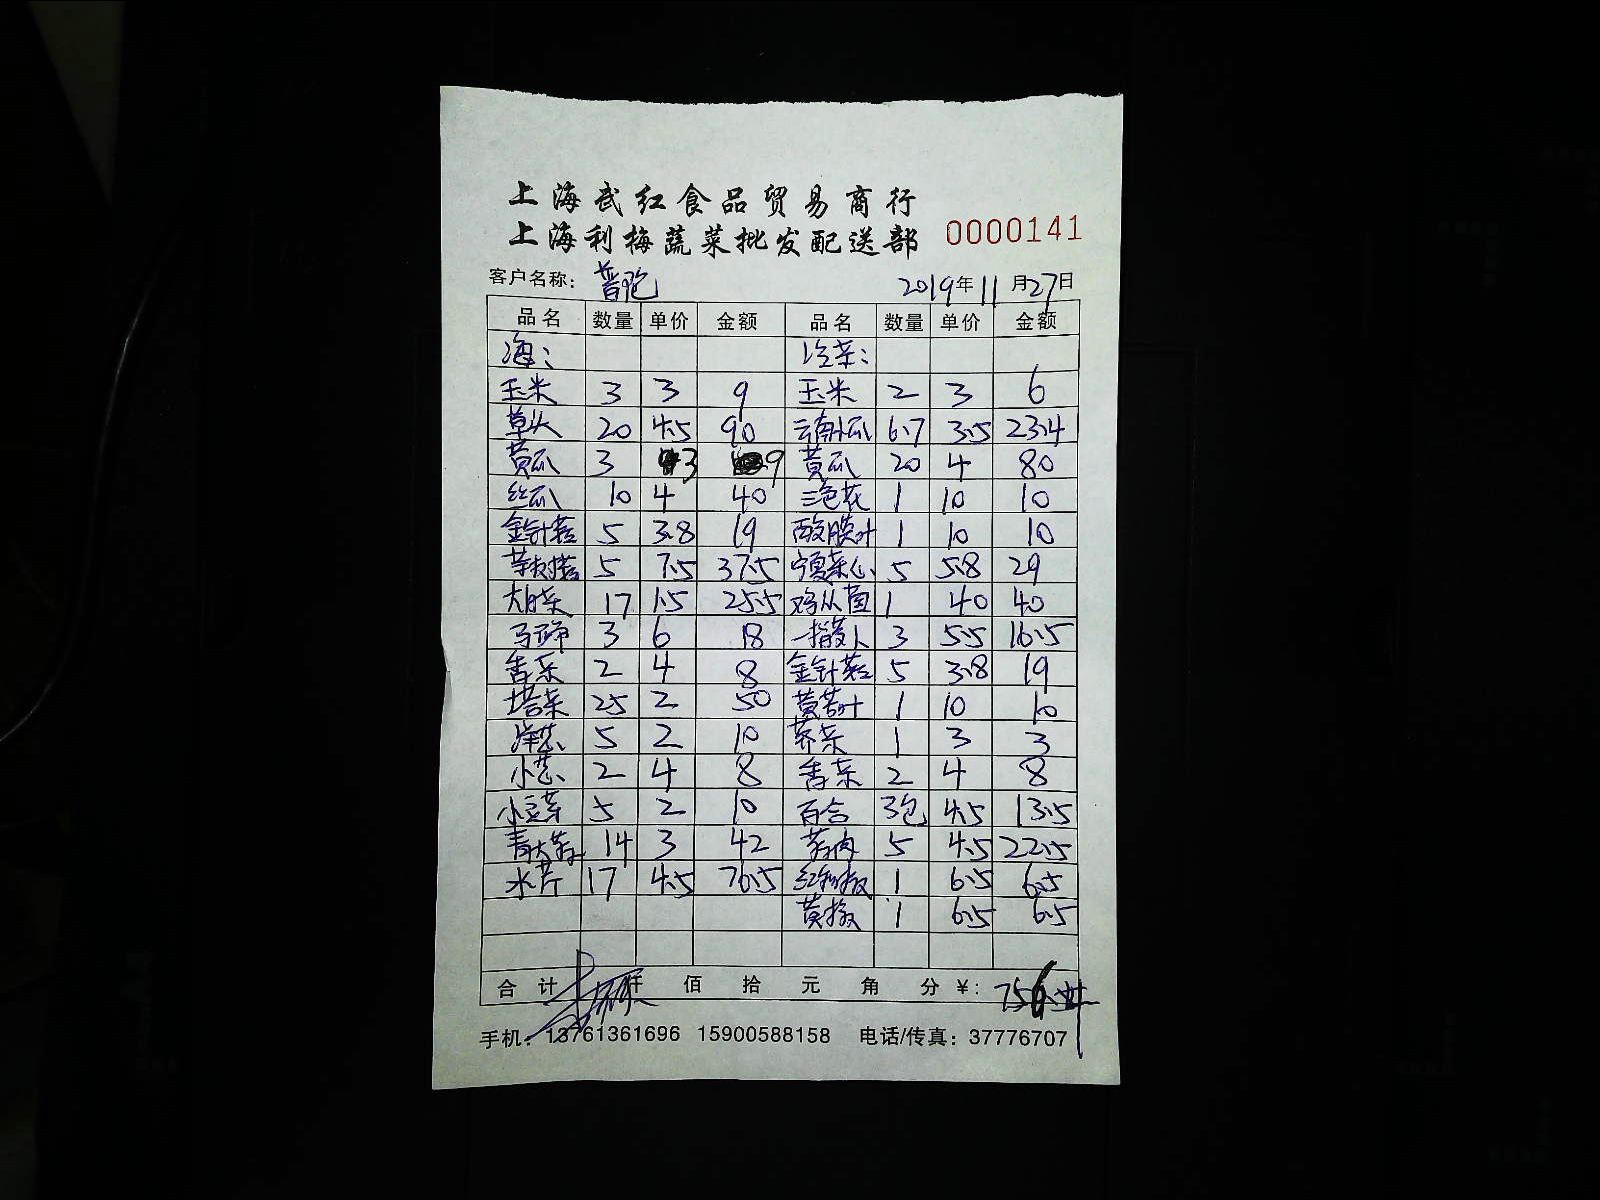 上海武红食品贸易商行
上海利梅蔬菜批发配送部 0000141
客户名称： 2019年11月27日
品名 数量 单价 金额 品名 数量 单价 金额
海： 冷菜：
玉米 3 3 9 玉米 2 3 6
草头 20 4.5 90 云南小瓜 6.7 3.5 23.4
黄瓜 3 3 9 黄瓜 20 4 80
丝瓜 10 4 40 三色花 1 10 10
金针菇 5 3.8 19 酸膜叶 1 10 10
茶树菇 5 7.5 37.5 宁夏菜心 5 5.8 29
大白菜 17 1.5 25.5 鸡从菌 1 40 40
马蹄 3 6 18 一指美人 3 5.5 16.5
香菜 2 4 8 金针菇 5 3.8 19
塔菜 25 2 50 黄苦叶 1 10 10
洋葱 5 2 10 荠菜 1 3 3
小葱 2 4 8 香菜 2 4 8
小豆芽 5 2 10 百合 3包 4.5 13.5
青大蒜 14 3 42 5 4.5 22.5
水芹 17 4.5 76.5 红椒 1 6.5 6.5
黄椒 1 6.5 6.5
合计 仟 佰 拾 元 角 分 ¥: 756
手机：13761361696 15900588158 电话/传真：37776707